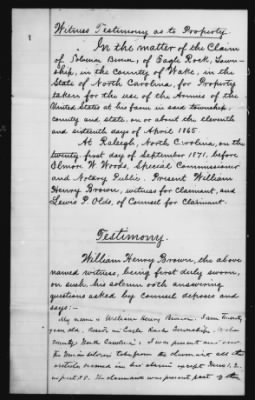 1
Witness Testimony as to Property
In the matter of the Claim
of Bunn, of Eagle Rock, Town-
ship, in the county of Wake, in the
State of North Carolina, for Property
taken for the use of the Armies of the
United States at his farm in said township,
county and state, on or about the eleventh
and sixteenth days of April 1865.
At Raleigh, North Carolina, on the
twenty first day of September 1871, before
Elmore W. Woods, Special Commissioner
and Notary Public. Present William
Henry Brown, witness for Claimant, and
Lewis P. Olds, of Counsel for Claimant.
Testimony.
William Henry Brown, the above
named witness, being first duly sworn,
on such his solemn oath answering
questions asked by Counsel deposes and
says:-
My name is William Henry Brown. I am twenty
years old. Reside in Eagle Rock Township, Wake
County, North Carolina. I was present and saw
the Union soldiers take from the claimant all the
articles named in his claim except Items 1. 2.
The claimant was present part of the